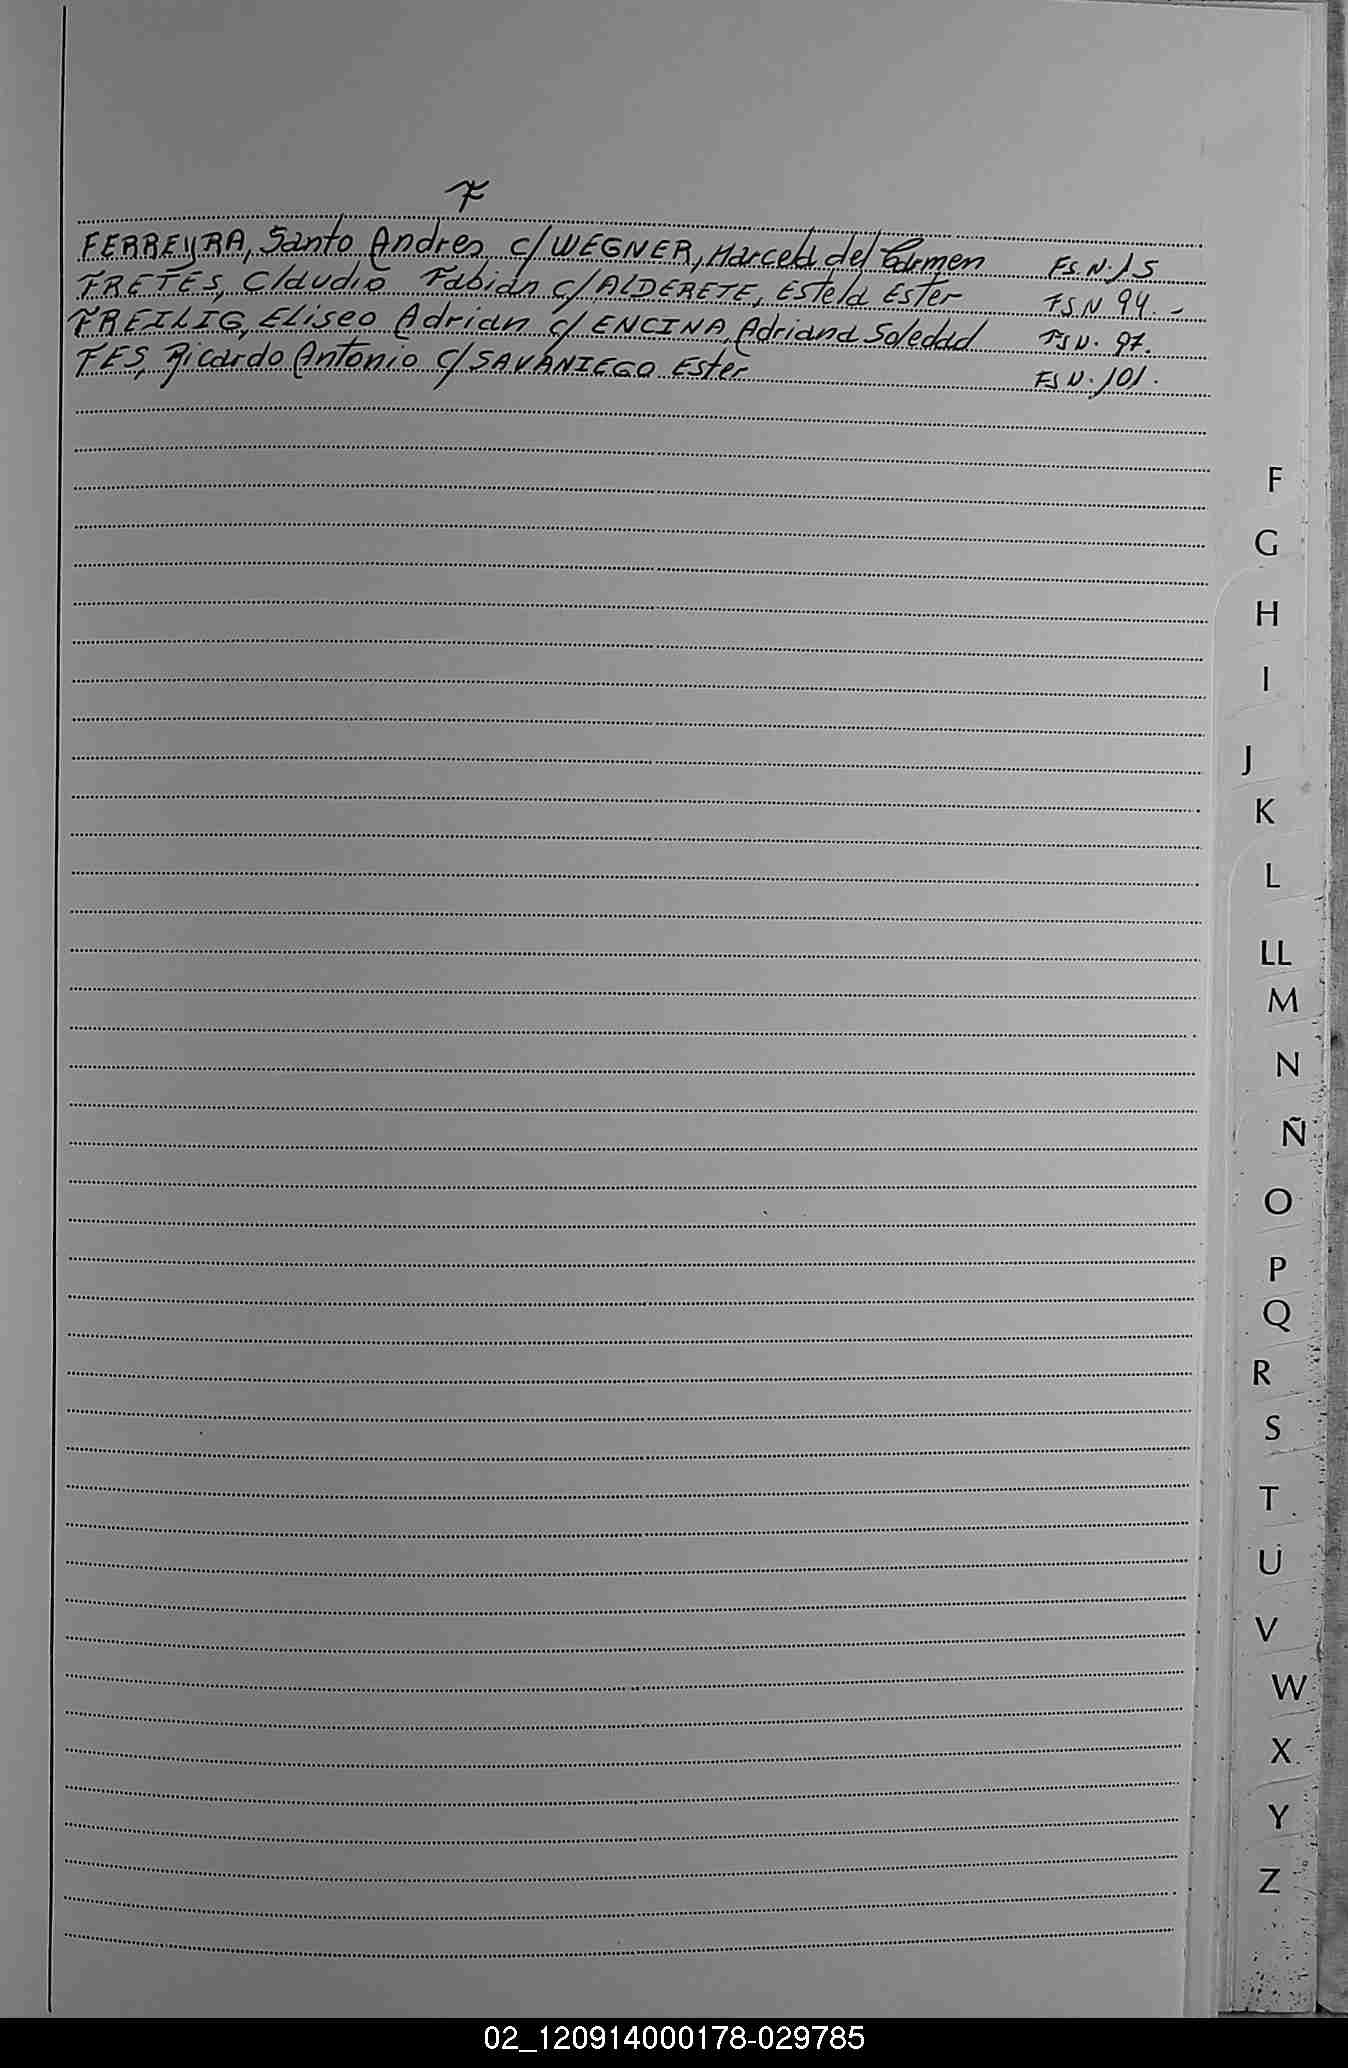 F
FERREYRA, Santo Andres c/ WEGNER, Marcela del Carmen Fs. N. 15
FRETES, Claudio Fabian c/ ALDERETE, Estela Ester FS N 94. -
FREILIG, Eliseo Adrian c/ ENCINA, Adriana Soledad FS N. 97.
FES, Ricardo Antonio c/ SAVANIEGO Ester FS N. 101.
F
G
H
I
J
K
L
LL
M
N
Ñ
O
P
Q
R
S
T
U
V
W
X
Y
Z
02_120914000178-029785